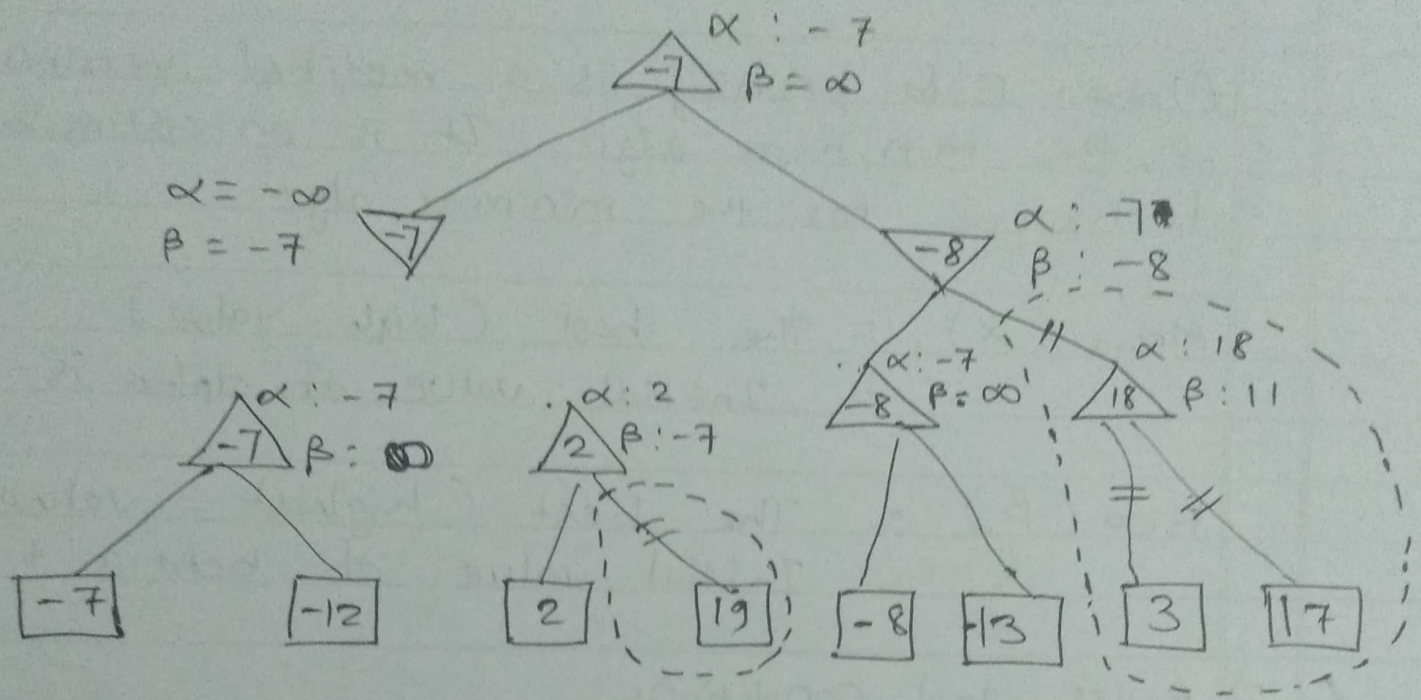 α : -7
-7
β = ∞
α = -∞
β = -7
-7
α : -7
-8
β : -8
α : -7
-7
β :
α : 2
2
β : -7
α : -7
-8
β = ∞
α : 18
18
β : 11
-7
-12
2
19
-8
-13
3
17